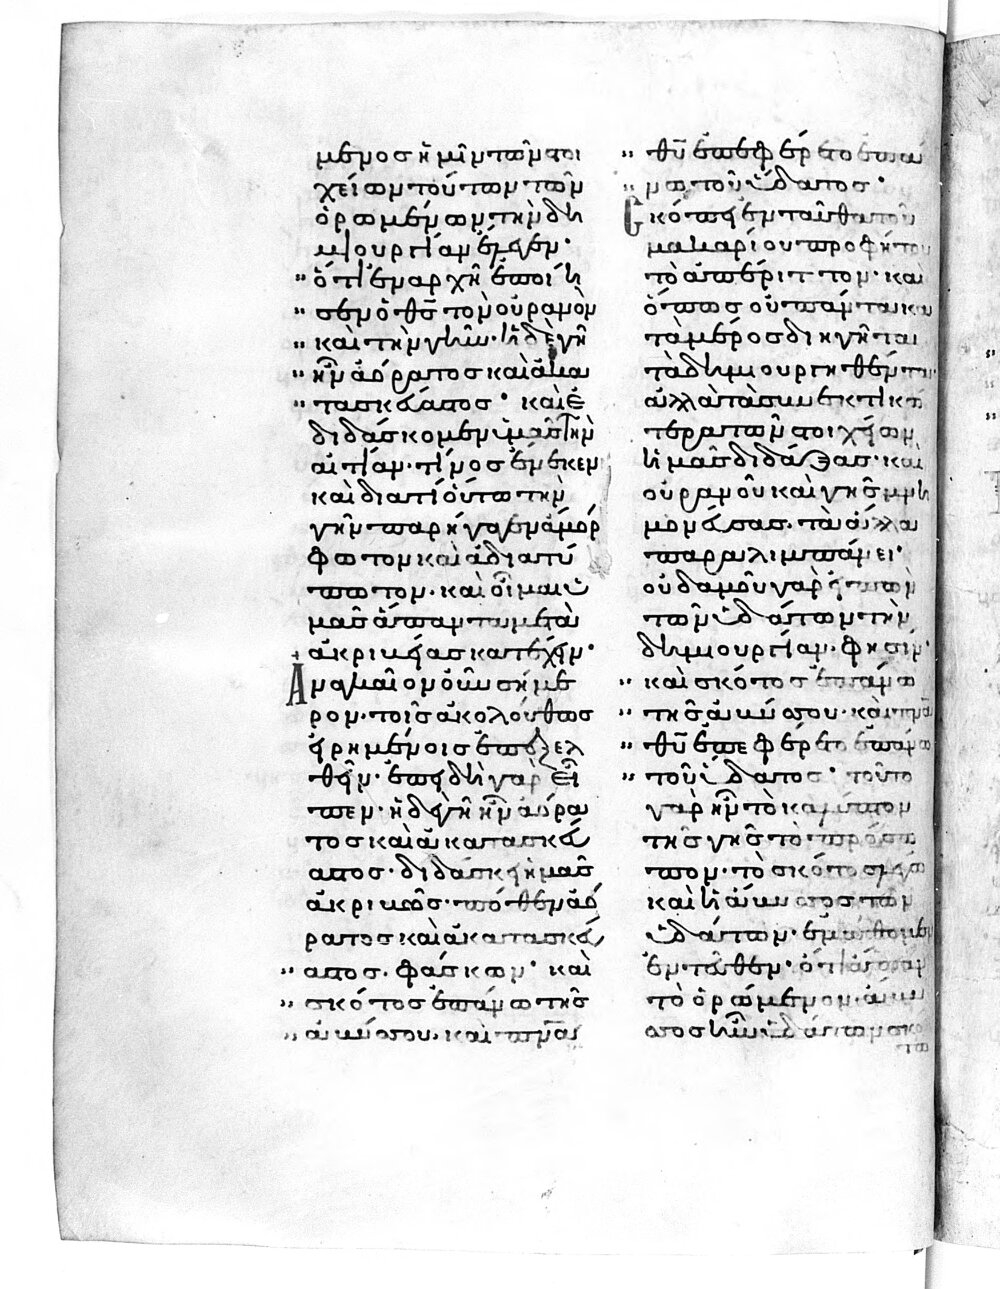 μενος ἡμῖν τῶν στοι
χείων τούτων τῶν
ὁρωμένων τὴν δη
μιουργίαν ἔλεγεν·
" ὅτι ἐν ἀρχῆ ἐποίη
" σεν ὁ θς τὸν οὐρανὸν
" καὶ τὴν γῆν· ἡ δὲ γῆ
" ἦν ἀόρατος καὶ ἀκα
" τασκέυαστος· καὶ ἐ
διδάσκομεν ὑμᾶς τὴν
αἰτίαν· τίνος ἕνεκεν
καὶ διατί οὕτω τὴν
γῆν παρήγαγεν ἄμορ
φωτον καὶ ἀδιατύ
πωτον· καὶ οἶμαι ὑ
μᾶς ἅπαντα μετὰ
ἀκριβείας κατέχειν·
Ἀναγκαῖον οὖν σήμε
ρον· τοῖς ἀκολούθως
εἰρημένοις ἐπεξελ
θεῖν· ἐπειδὴ γὰρ εἶ
πεν· ἡ δὲ γῆ ἦν ἀόρα
τος καὶ ἀκατασκέυ
αστος· διδάσκει ἡμᾶς
ἀκριβῶς· πόθεν ἀό
ρατος καὶ ἀκατασκέυ
" αστος. φάσκων· καὶ
" σκότος ἐπάνω τῆς
" ἀβύσσου· καὶ πνα
" θυ ἐπεφέρετο ἐπά
" νω τοῦ ὕδατος·
Σκόπει ἐνταῦθα τοῦ
μακαρίου προφήτου
τὸ ἀπέριττον· καὶ
ὅπως οὐ πάντα κα
τὰ μέρος διηγῆται
τὰ δημιουργηθέντα·
ἀλλὰ τὰ συνεκτικώ
τερα τῶν στοιχείων
ἡμᾶς διδάξας· καὶ
οὐρανοῦ καὶ γῆς μνη
μονέυσας· τὰ ἄλλα
παραλιμπάνει·
οὐδαμοῦ γὰρ εἰπὼν
τῶν ὑδάτων τὴν
δημιουργίαν· φησίν·
" καὶ σκότος ἐπάνω
" τῆς ἀβύσσου· καὶ πνα
" θυ ἐπεφέρετο ἐπάνω
" τοῦ ὕδατος· τοῦτο
γὰρ ἦν τὸ καλύπτον
τῆς γῆς τὸ πρόσω
πον· τὸ σκότος λέγω
καὶ ἡ ἄβυσσος τῶν
ὑδάτων· ἐμάθομεν
ἐντεῦθεν· ὅτι ἅπαν
τὸ ὁρώμενον· ἄβυσ
σος ἦν ὑδάτων σκό
τω